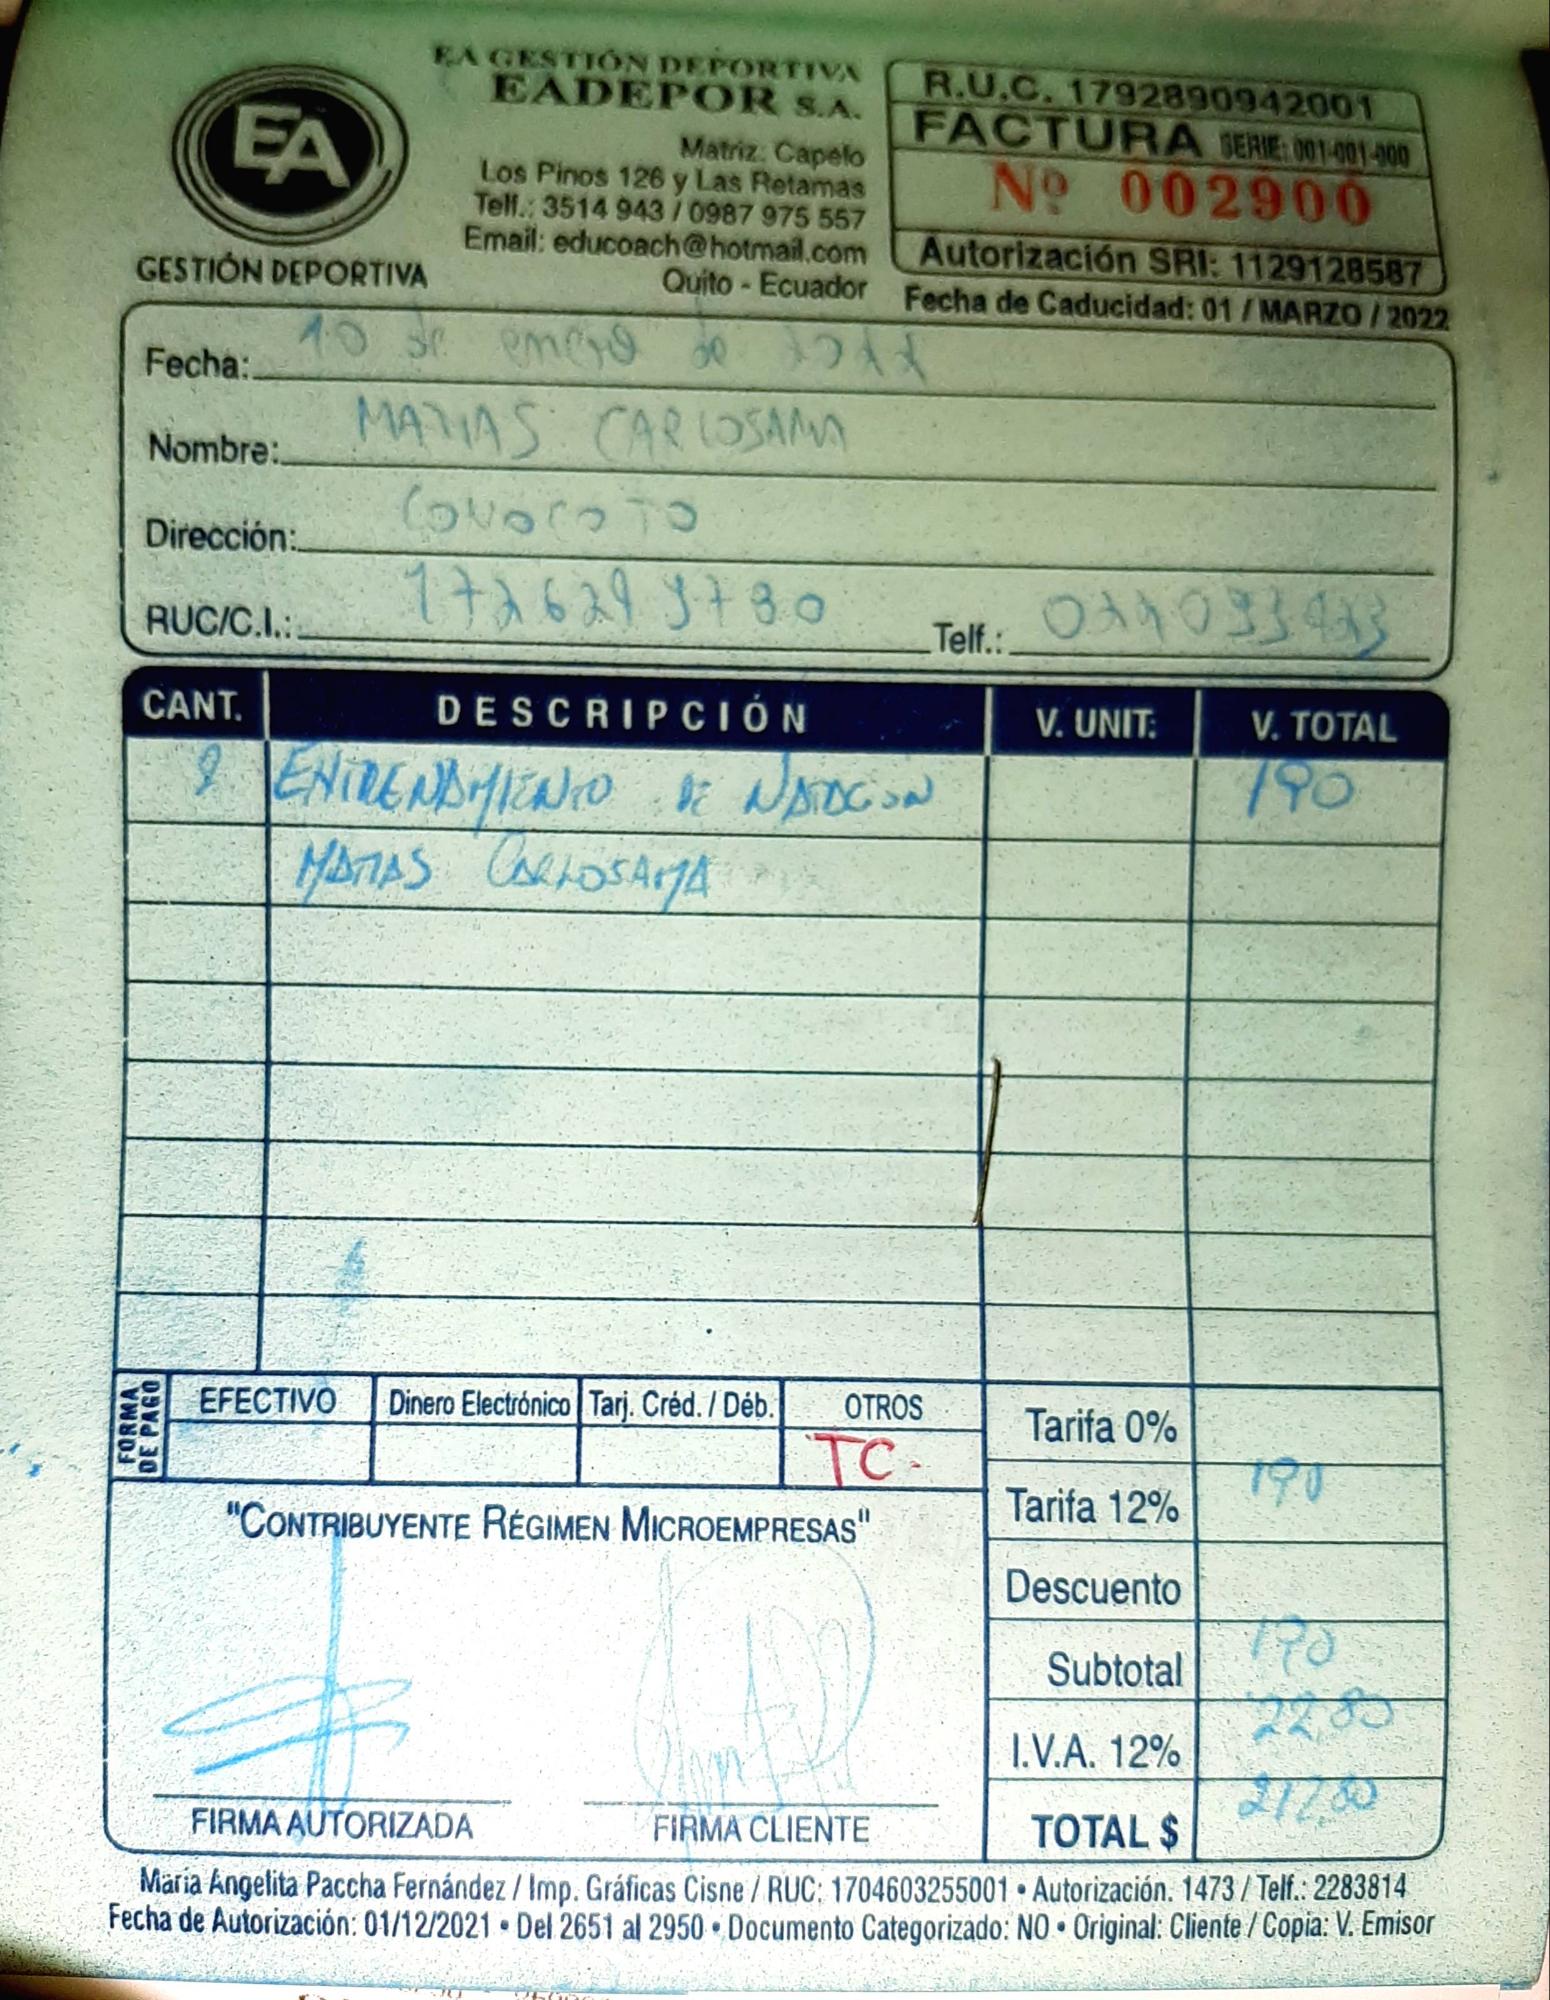 EA GESTIÓN DEPORTIVA
EADEPOR S.A.
EA
GESTIÓN DEPORTIVA
Matriz: Capelo
Los Pinos 126 y Las Retamas
Telf.: 3514 943 / 0987 975 557
Email: educoach@hotmail.com
Quito - Ecuador
R.U.C. 1792890942001
FACTURA SERIE: 001-001-000
Nº 002900
Autorización SRI: 1129128587
Fecha de Caducidad: 01 / MARZO / 2022
Fecha: 10 de enero de 2022
Nombre: MATIAS CARLOSAMA
Dirección: CONOCOTO
RUC/C.I.: Telf.:
CANT. DESCRIPCIÓN V. UNIT: V. TOTAL
ENTRENAMIENTO DE NATACION 190
MATIAS CARLOSAMA
FORMA DE PAGO
EFECTIVO Dinero Electrónico Tarj. Créd. / Déb. OTROS
TC.
Tarifa 0%
Tarifa 12% 190
Descuento
Subtotal 190
I.V.A. 12% 22,80
TOTAL $ 212,80
"CONTRIBUYENTE RÉGIMEN MICROEMPRESAS"
FIRMA AUTORIZADA FIRMA CLIENTE
María Angelita Paccha Fernández / Imp. Gráficas Cisne / RUC: 1704603255001 • Autorización. 1473 / Telf.: 2283814
Fecha de Autorización: 01/12/2021 • Del 2651 al 2950 • Documento Categorizado: NO • Original: Cliente / Copia: V. Emisor